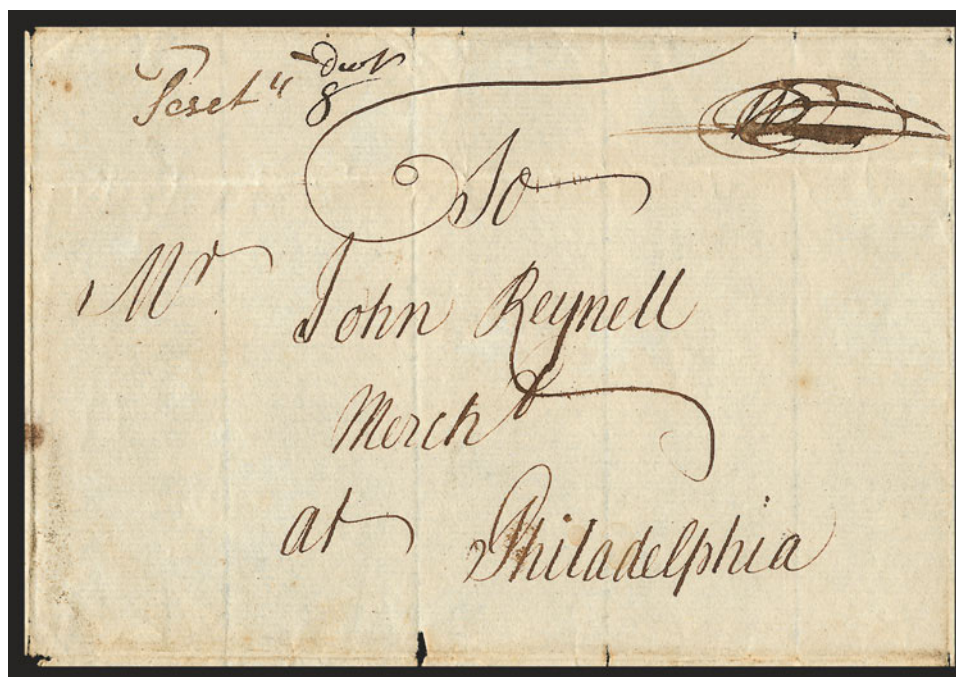 dwt
8
To
Mr John Reynell
Mercht
at Philadelphia